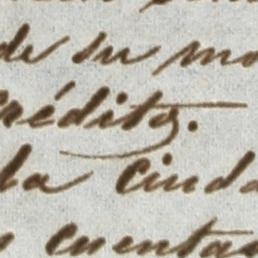 de su mo
crédito.
la ciuda
cuentas